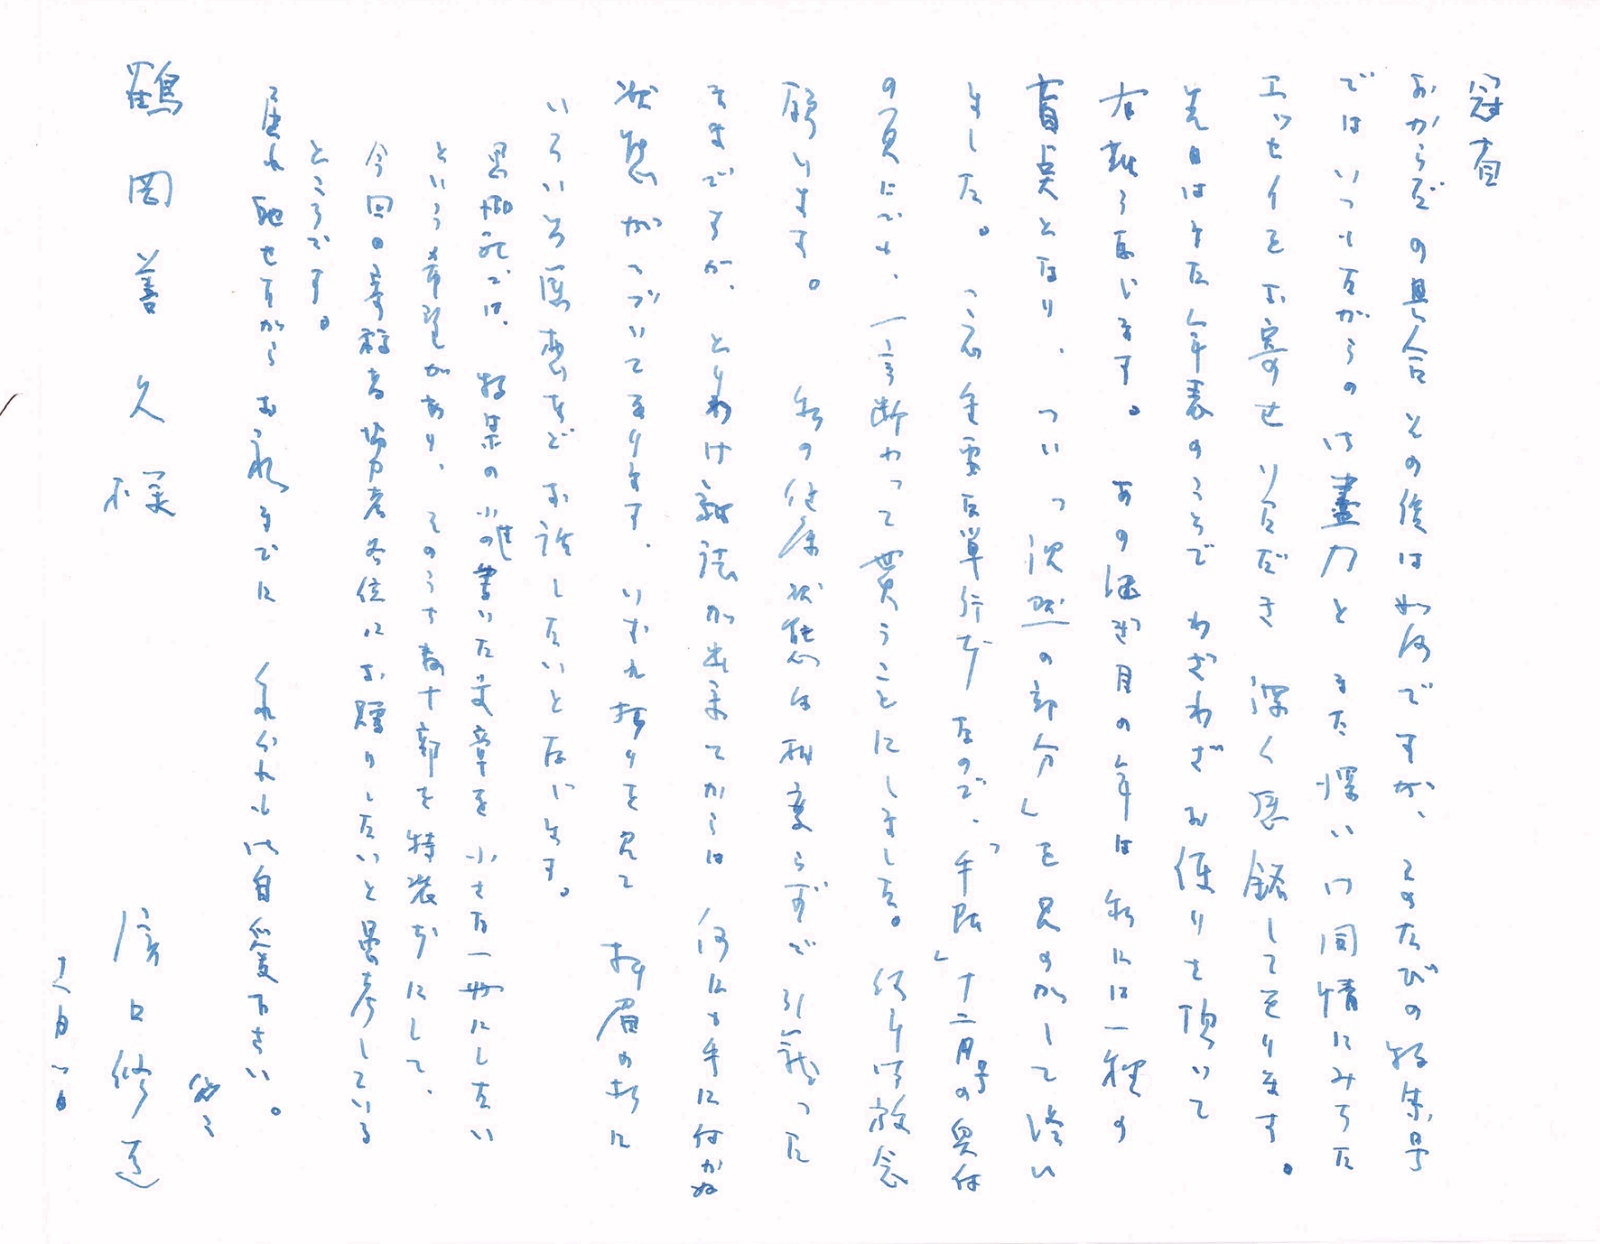 冠省
おからだの具合その後はいかがですか、このたびの特集号
ではいつもながらの御盡力と また深い御同情にみちた
エッセイをお寄せいただき 深く感銘してをります。
先日はまた年表のことで わざわざお便りを頂いて
有難う存じます。 あの 月の年は 私には一種の
盲点となり、ついつい 沈黙の部分」を見のがして了ひ
ました。 これ 単行本なので、「手帖」十二月号の奥付
の頁にでも、一言断わって貰うことにしました。 何卒御放念
願ります。 私の健康状態は相変らずで 引籠った
ままですが、とりわけ雑誌が出来てからは 何にも手に付かぬ
状態がつづいてをります、いずれ折りを見て 拝眉の折に
いろいろ感想などお話ししたいと存じます。
思潮社では、特集の小生の書いた文章を 小さな一冊にしたい
という希望があり、そのうち数十部を特装本にして、
今回の寄稿者協力者各位にお贈りしたいと思考している
ところです。
遅れ馳せながらお礼までに くれぐれも御自愛下さい。
匆々
瀧口修造
十月一日
鶴岡善久様